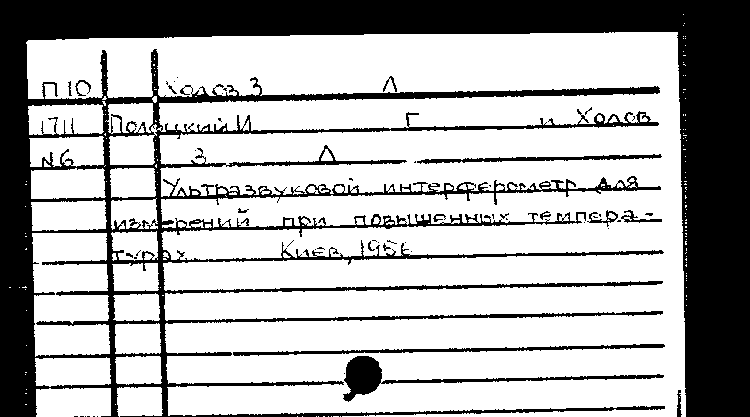 П 10 Ходов З Л
1711 Полоцкий И Г и Ходов
N6 З Л
Ультразвуковой интерферометр для
измерений при повышенных темпера-
турах. Киев, 1956